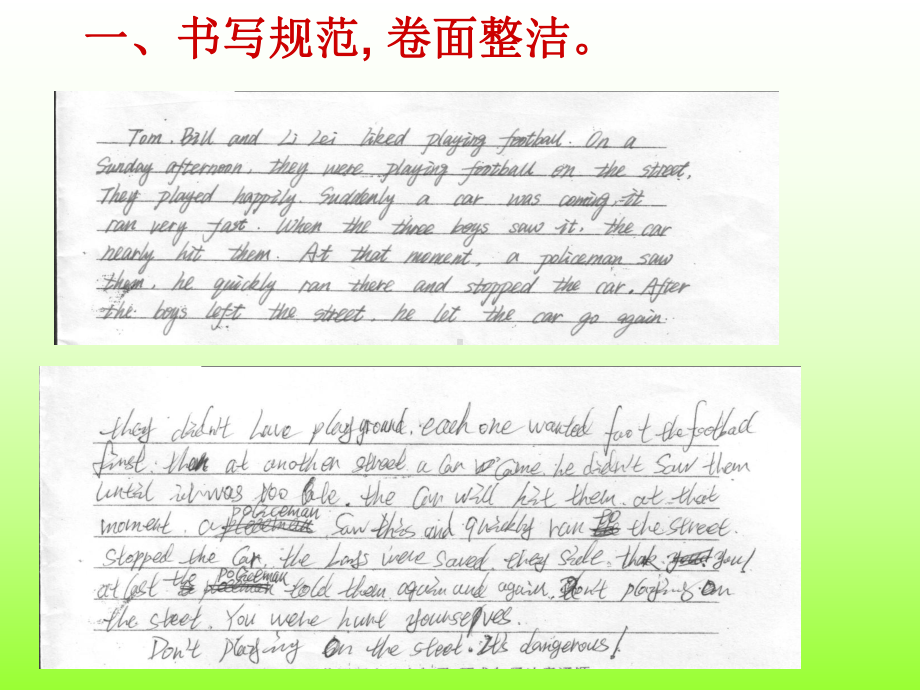 一、书写规范,卷面整洁。
Tom. Bill and Li Lei liked playing football. On a
Sunday afternoon, they were playing football on the street.
They played happily. Suddenly a car was coming, it
ran very fast. When the three boys saw it, the car
nearly hit them. At that moment, a policeman saw
them, he quickly ran there and stopped the car. After
the boys left the street, he let the car go again.
they didn't have playground. each one wanted foot the football
first. then at another street a car came, he didn't saw them
until it was too le. the car will hit them. at that
moment. a policeman saw this and quickly ran to the street.
stopped the car. the boys were saved. they side. thak you!
at last the policeman told them again and again. Don't playing on
the steet. You were hunt yourselves.
Don't playing On the steet. It's dangerous!